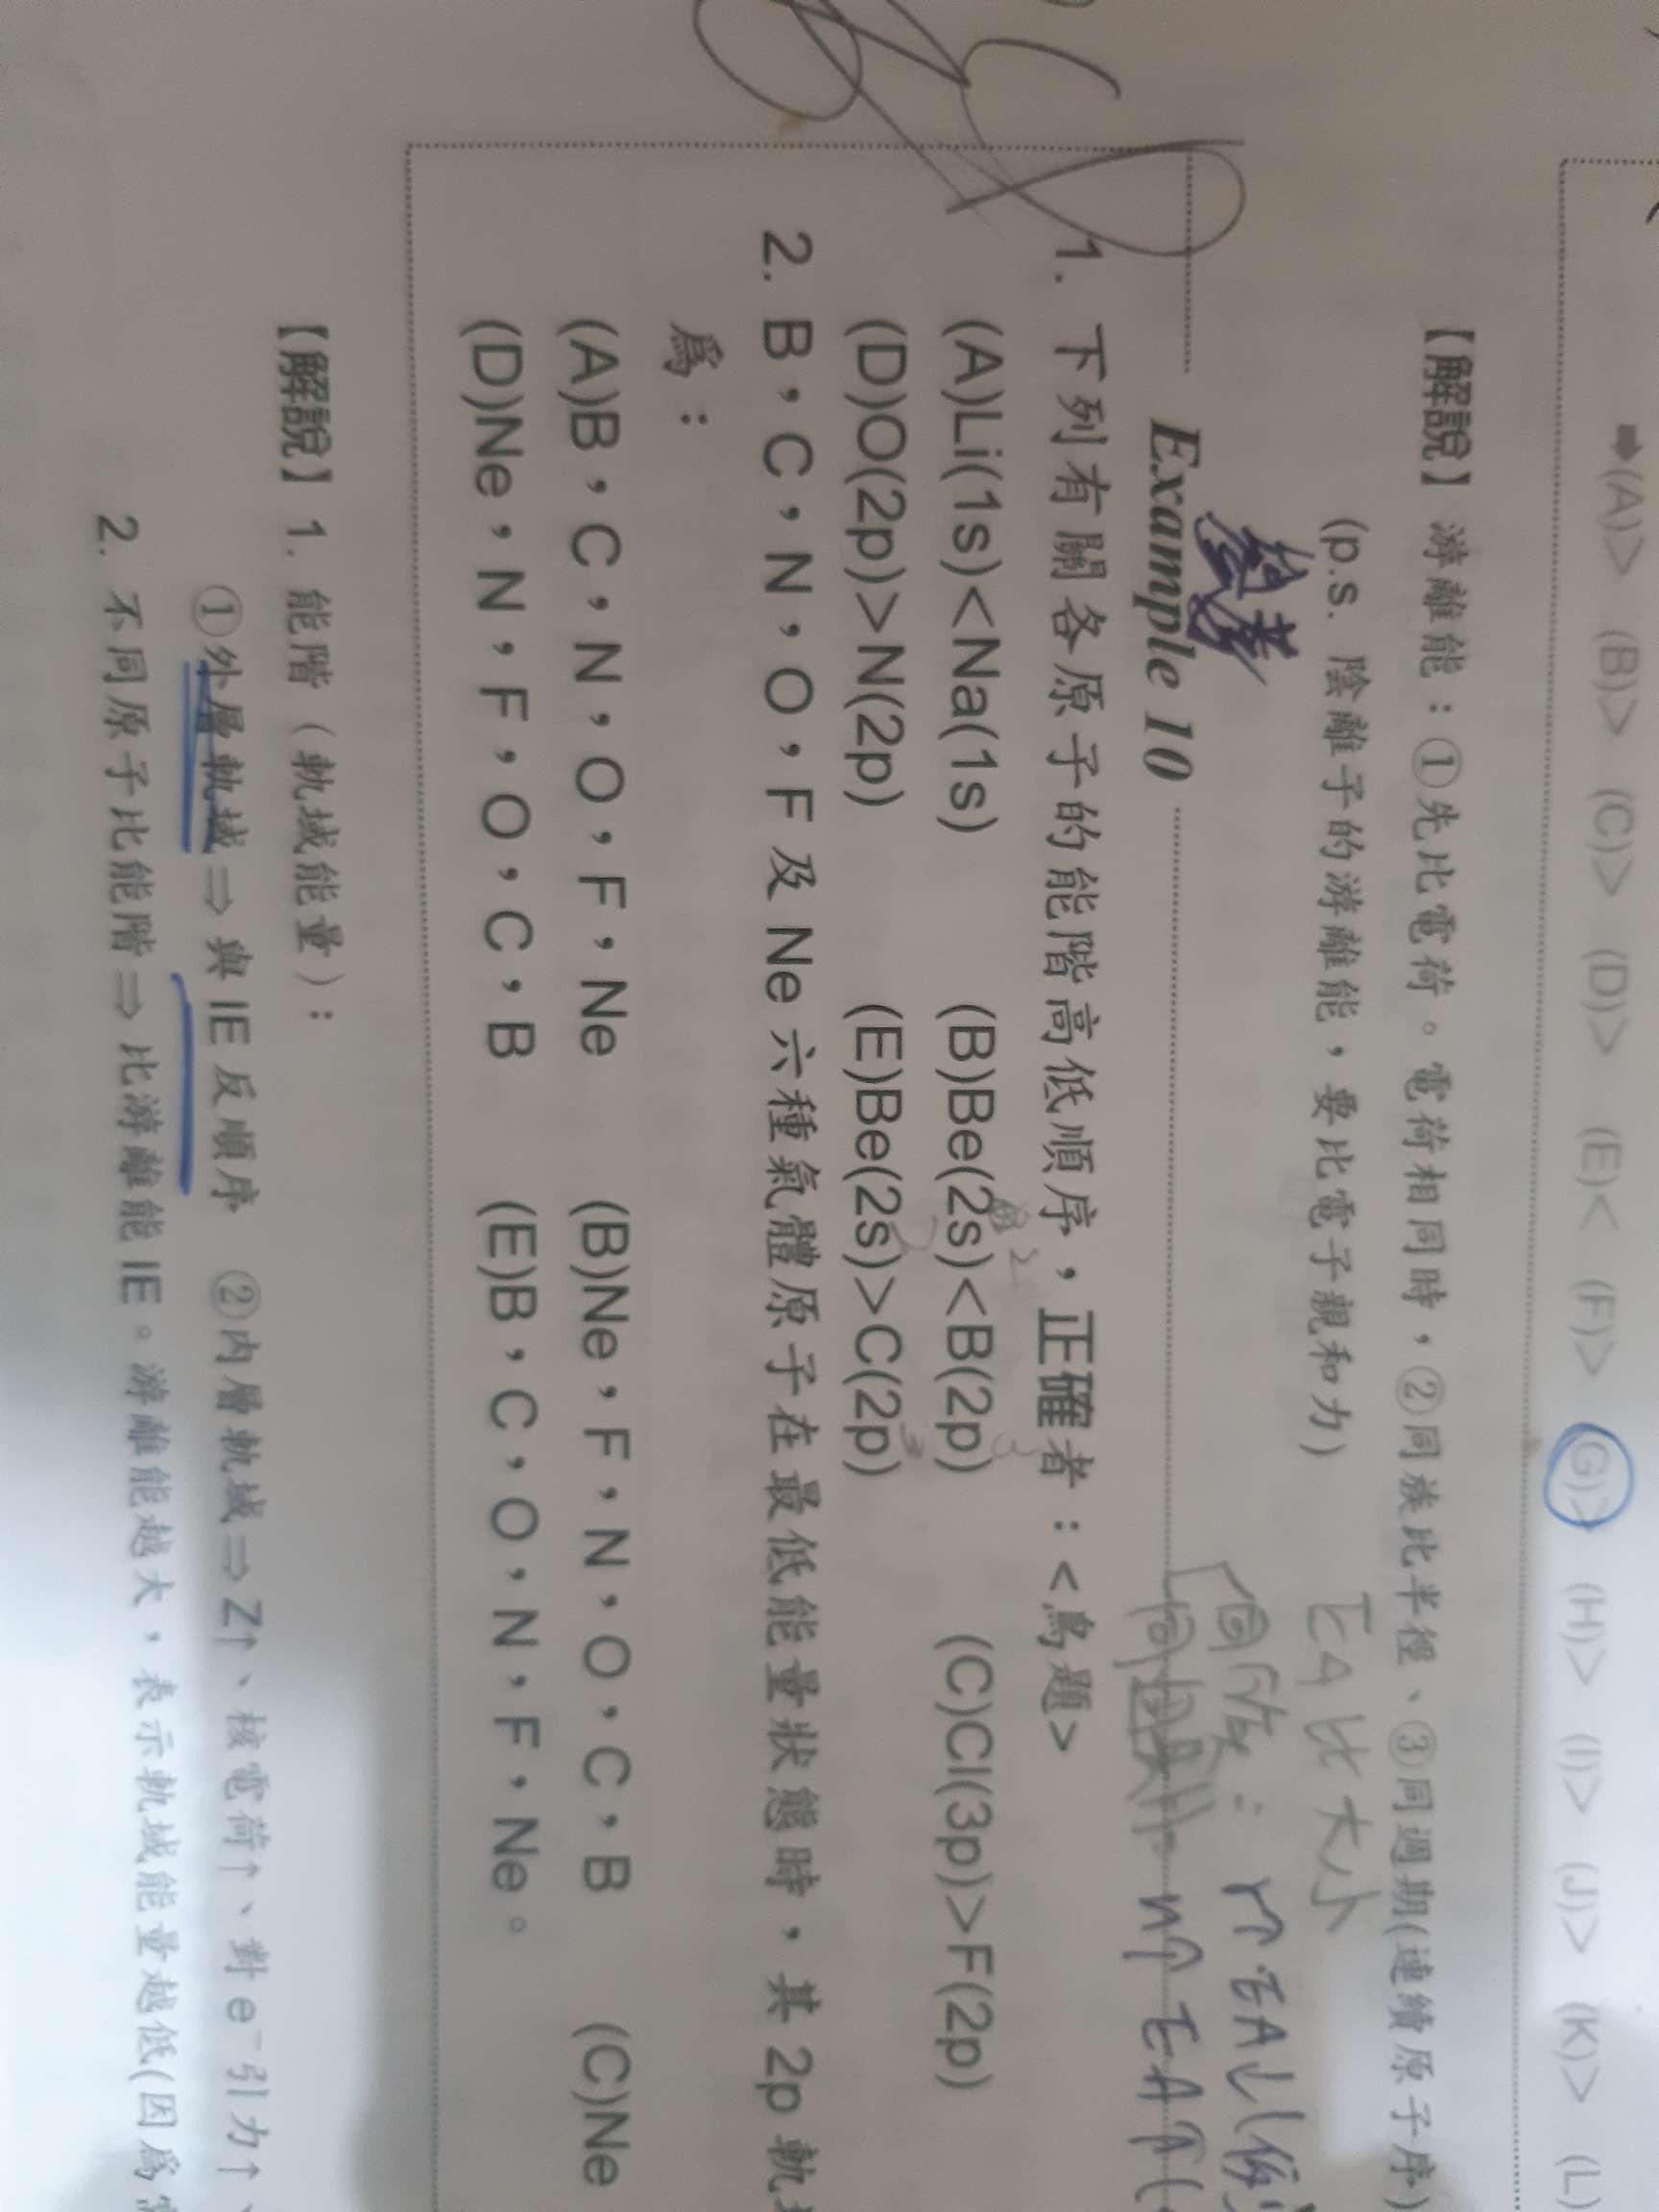 ➡(A)> (B)> (C)> (D)> (E)< (F)> (G)> (H)> (I)> (J)> (K)> (L)
【解說】游離能：①先比電荷。電荷相同時，②同族比半徑、③同週期(連續原子序)
(p.s. 陰離子的游離能，要比電子親和力)
EA 比大小
同族： r EA↓
Example 10
1. 下列有關各原子的能階高低順序，正確者：<鳥題>
(A)Li(1s)<Na(1s) (B)Be(2s)<B(2p) (C)Cl(3p)>F(2p)
(D)O(2p)>N(2p) (E)Be(2s)>C(2p)
2. B，C，N，O，F 及 Ne 六種氣體原子在最低能量狀態時，其 2p 軌
為：
(A)B，C，N，O，F，Ne (B)Ne，F，N，O，C，B (C)Ne
(D)Ne，N，F，O，C，B (E)B，C，O，N，F，Ne。
【解說】1. 能階（軌域能量）：
①外層軌域⇒與 IE 反順序 ②內層軌域⇒Z↑、核電荷↑、對 e⁻引力↑、
2. 不同原子比能階⇒比游離能 IE。游離能越大，表示軌域能量越低(因為